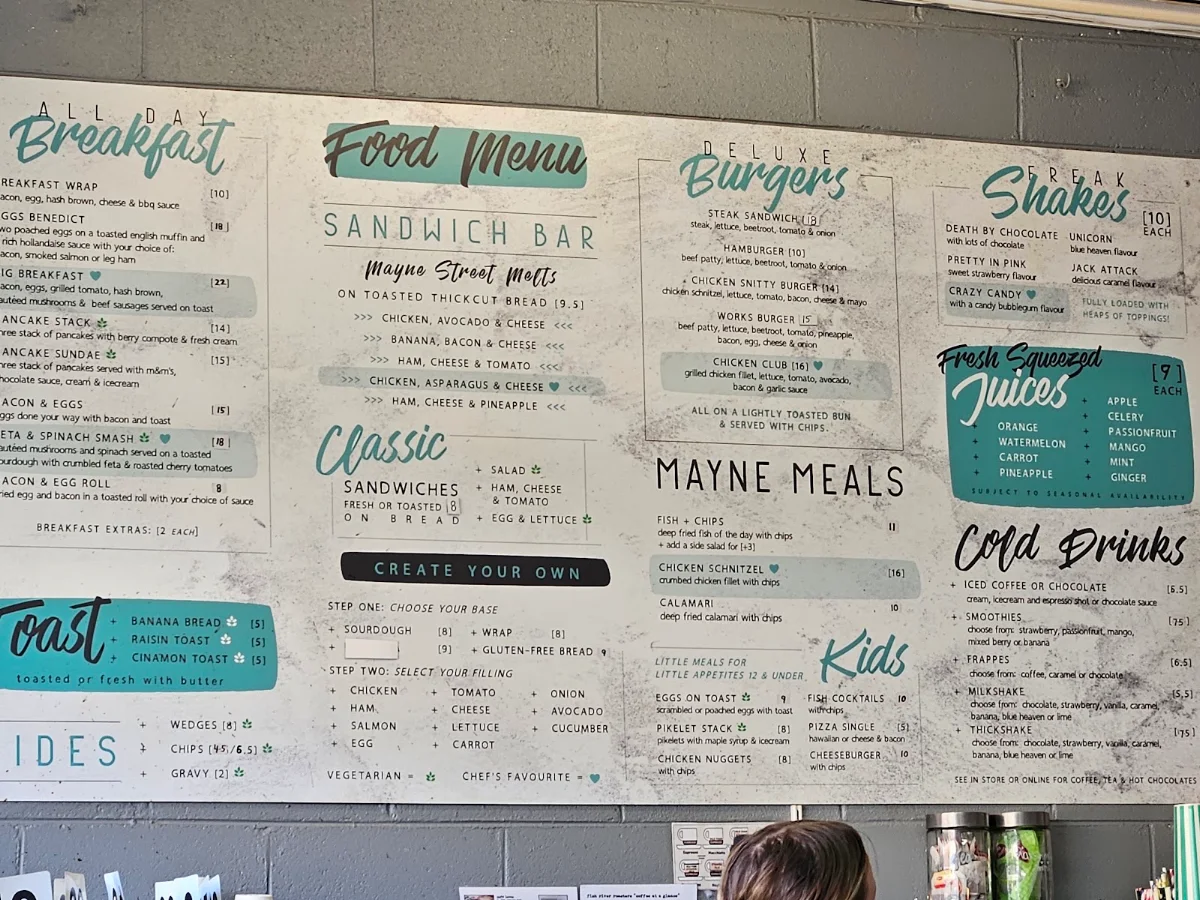 ALL DAY
Breakfast
REAKFAST WRAP [10]
acon, egg, hash brown, cheese & bbq sauce
GGS BENEDICT [18]
wo poached eggs on a toasted english muffin and
rich hollandaise sauce with your choice of:
acon, smoked salmon or leg ham
IG BREAKFAST [22]
acon, eggs, grilled tomato, hash brown,
autéed mushrooms & beef sausages served on toast
ANCAKE STACK [14]
hree stack of pancakes with berry compote & fresh cream
ANCAKE SUNDAE [15]
hree stack of pancakes served with m&m's,
hocolate sauce, cream & icecream
ACON & EGGS [15]
ggs done your way with bacon and toast
ETA & SPINACH SMASH [18]
autéed mushrooms and spinach served on a toasted
ourdough with crumbled feta & roasted cherry tomatoes
ACON & EGG ROLL 8
ried egg and bacon in a toasted roll with your choice of sauce
BREAKFAST EXTRAS: [2 EACH]
Toast
+ BANANA BREAD [5]
+ RAISIN TOAST [5]
+ CINAMON TOAST [5]
toasted or fresh with butter
IDES
+ WEDGES [8]
+ CHIPS [4.5/6.5]
+ GRAVY [2]
Food Menu
SANDWICH BAR
Mayne Street Melts
ON TOASTED THICKCUT BREAD [9.5]
>>> CHICKEN, AVOCADO & CHEESE <<<
>>> BANANA, BACON & CHEESE <<<
>>> HAM, CHEESE & TOMATO <<<
>>> CHICKEN, ASPARAGUS & CHEESE <<<
>>> HAM, CHEESE & PINEAPPLE <<<
Classic
SANDWICHES
FRESH OR TOASTED [8]
ON BREAD
+ SALAD
+ HAM, CHEESE
& TOMATO
+ EGG & LETTUCE
CREATE YOUR OWN
STEP ONE: CHOOSE YOUR BASE
+ SOURDOUGH [8] + WRAP [8]
+ [9] + GLUTEN-FREE BREAD 9
STEP TWO: SELECT YOUR FILLING
+ CHICKEN + TOMATO + ONION
+ HAM + CHEESE + AVOCADO
+ SALMON + LETTUCE + CUCUMBER
+ EGG + CARROT
VEGETARIAN = CHEF'S FAVOURITE =
DELUXE
Burgers
STEAK SANDWICH [18]
steak, lettuce, beetroot, tomato & onion
HAMBURGER [10]
beef patty, lettuce, beetroot, tomato & onion
CHICKEN SNITTY BURGER [14]
chicken schnitzel, lettuce, tomato, bacon, cheese & mayo
WORKS BURGER 15
beef patty, lettuce, beetroot, tomato, pineapple,
bacon, egg, cheese & onion
CHICKEN CLUB [16]
grilled chicken fillet, lettuce, tomato, avocado,
bacon & garlic sauce
ALL ON A LIGHTLY TOASTED BUN
& SERVED WITH CHIPS.
MAYNE MEALS
FISH + CHIPS 11
deep fried fish of the day with chips
+ add a side salad for [+3]
CHICKEN SCHNITZEL [16]
crumbed chicken fillet with chips
CALAMARI 10
deep fried calamari with chips
LITTLE MEALS FOR
LITTLE APPETITES 12 & UNDER,
Kids
EGGS ON TOAST 9
scrambled or poached eggs with toast
PIKELET STACK [8]
pikelets with maple syrup & icecream
CHICKEN NUGGETS [8]
with chips
FISH COCKTAILS 10
with chips
PIZZA SINGLE [5]
hawaiian or cheese & bacon
CHEESEBURGER 10
with chips
FREAK
Shakes
[10]
EACH
DEATH BY CHOCOLATE
with lots of chocolate
PRETTY IN PINK
sweet strawberry flavour
CRAZY CANDY
with a candy bubblegum flavour
UNICORN
blue heaven flavour
JACK ATTACK
delicious caramel flavour
FULLY LOADED WITH
HEAPS OF TOPPINGS!
Fresh Squeezed
Juices
[9]
EACH
+ ORANGE
+ WATERMELON
+ CARROT
+ PINEAPPLE
+ APPLE
+ CELERY
+ PASSIONFRUIT
+ MANGO
+ MINT
+ GINGER
SUBJECT TO SEASONAL AVAILABILITY
Cold Drinks
+ ICED COFFEE OR CHOCOLATE [6.5]
cream, icecream and espresso shot or chocolate sauce
+ SMOOTHIES [7.5]
choose from: strawberry, passionfruit, mango,
mixed berry or banana
+ FRAPPES [6.5]
choose from: coffee, caramel or chocolate
+ MILKSHAKE [5.5]
choose from: chocolate, strawberry, vanilla, caramel,
banana, blue heaven or lime
+ THICKSHAKE [7.5]
choose from: chocolate, strawberry, vanilla, caramel,
banana, blue heaven or lime
SEE IN STORE OR ONLINE FOR COFFEE, TEA & HOT CHOCOLATES